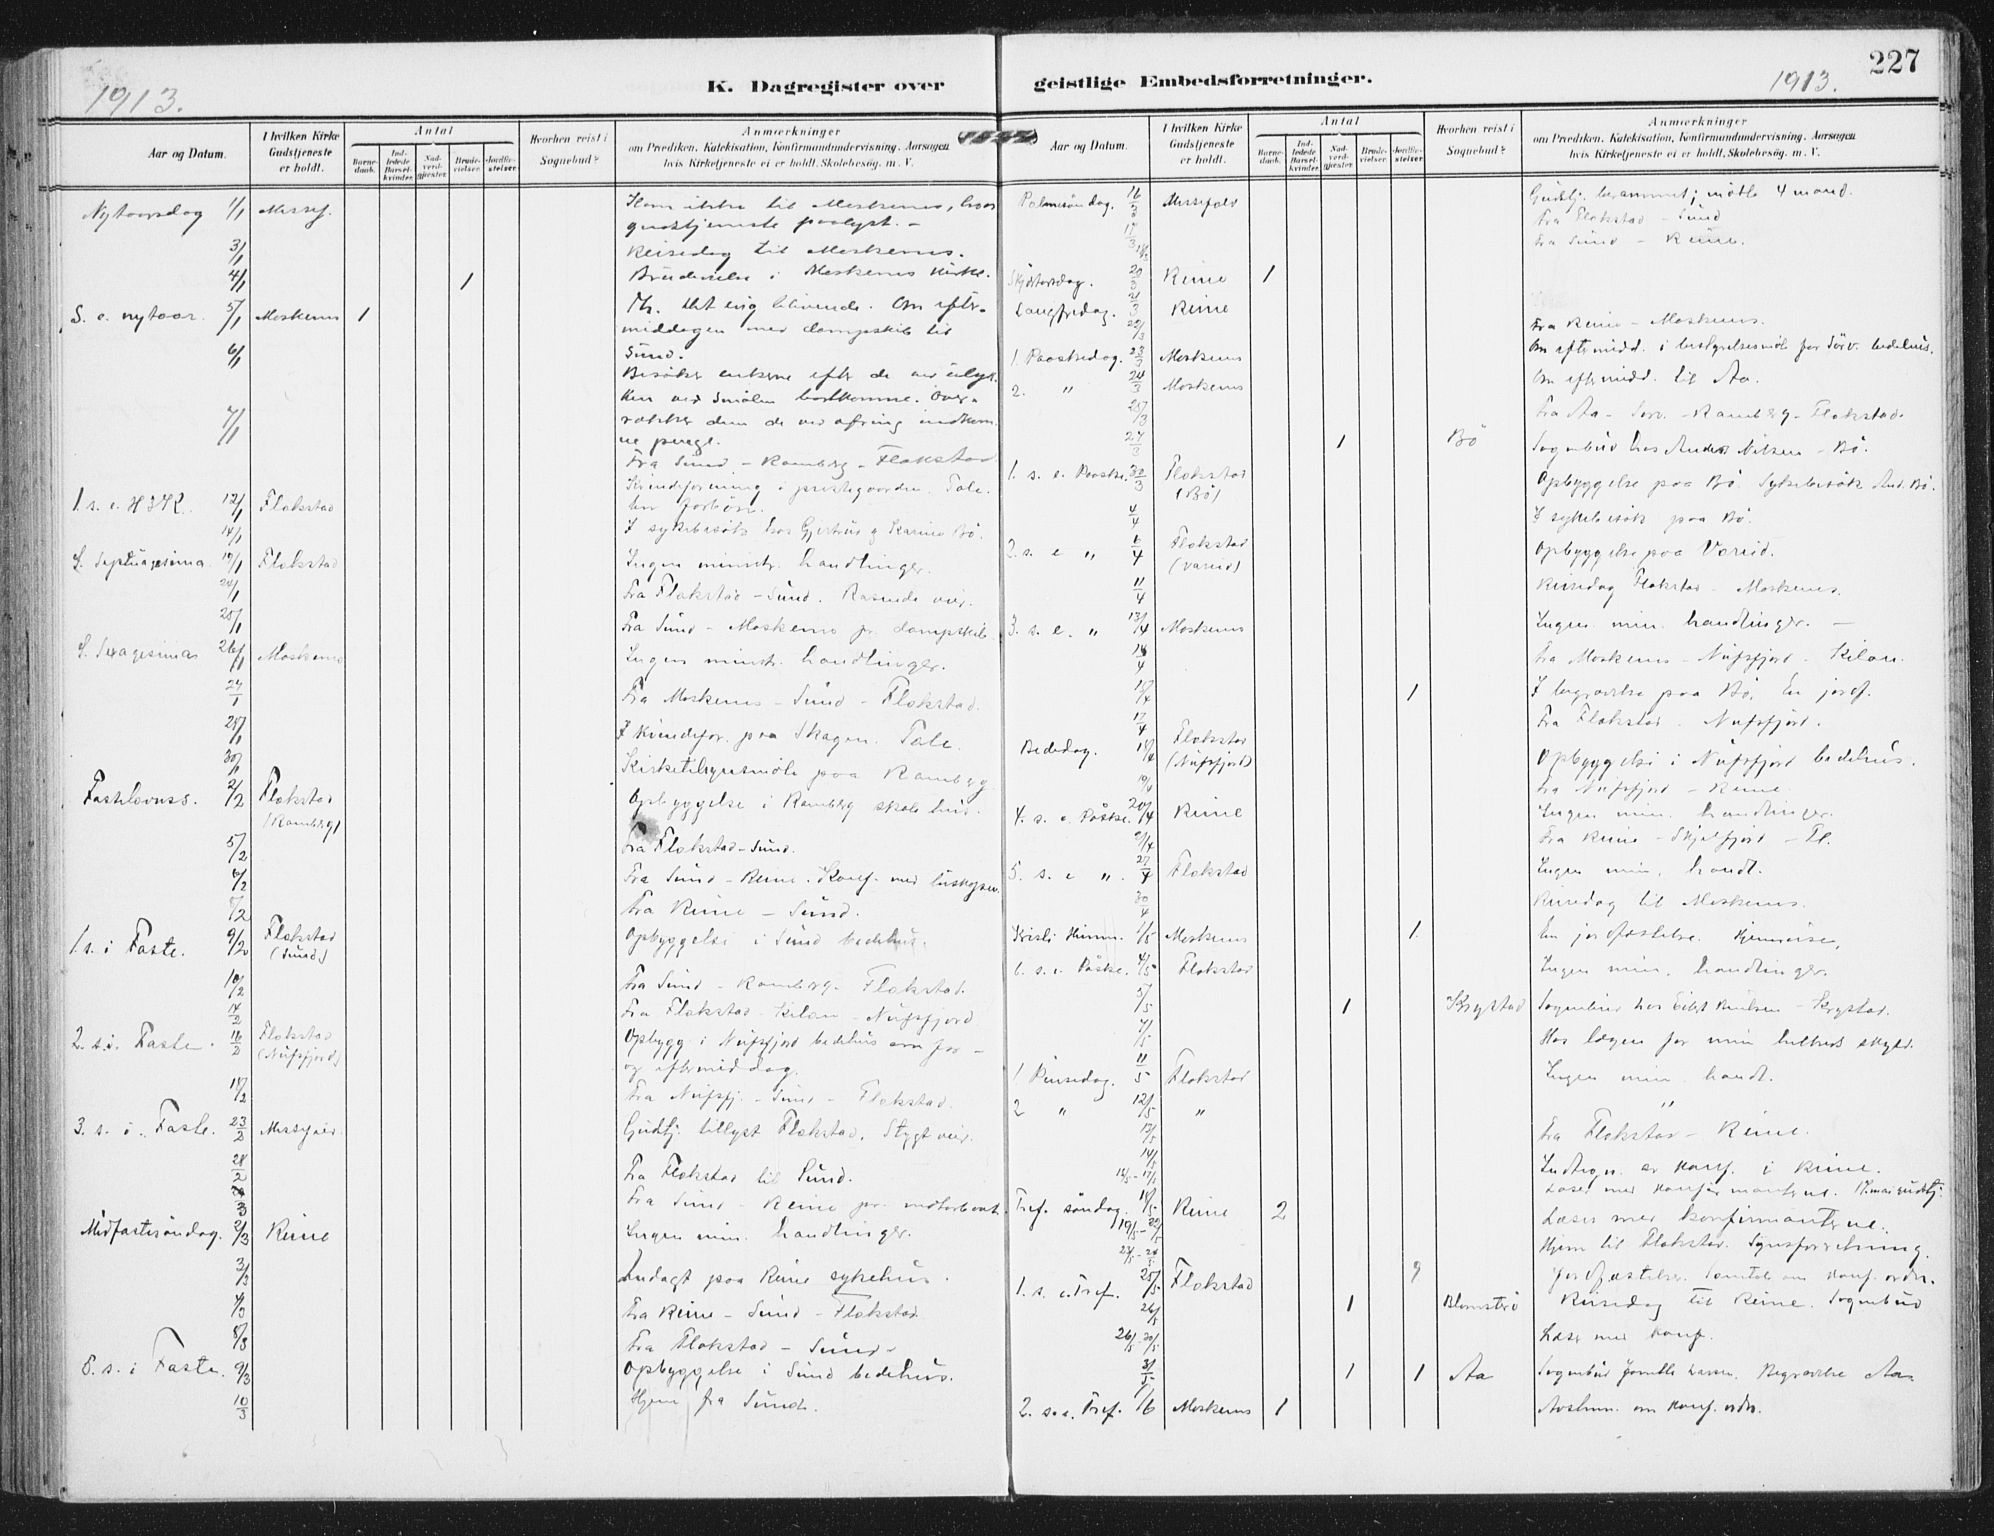 227
K. Dagregister over geistlige Embedsforretninger.
1913.
1913.
Aar og Datum.
I hvilken Kirke Gudstjeneste er holdt.
Antal
Barnedaab.
Indledede Barselkvinder.
Nadverdgjester.
Brudevielser.
Jordfæstelser.
Hvorhen reist i Sognebud?
Anmærkninger
om Prædiken, Katekisation, Konfirmandundervisning, Aarsagen
hvis Kirketjeneste ei er holdt, Skolebesøg. m. V.
Nytaarsdag 1/1 Messef. Kom ikke til Moskenes, hvor
gudstjeneste paalyst. –
3/1 Reisedag til Moskenes.
4/1 1 Brudevielse i Moskenes kirke.
S. e. nytaar. 5/1 Moskenes 1 Om efter-
middagen med dampskib til
Sund.
6/1 Besøker enkerne efter de
7/1 Fra Sund – Ramberg – Flakstad
1. s. e. H3K. 12/1 Flakstad Kvindeforening i prestegaarden. Tale.
14/1 I sykebesøk hos Gjertrud og Karine Bø.
S. Septuagesima 19/1 Flakstad Ingen ministr. handlinger.
24/1 Fra Flakstad – Sund. Rasende veir.
25/1 Fra Sund – Moskenes pr. dampskib.
S. Sexagesima 26/1 Moskenes Ingen ministr. handlinger.
27/1 Fra Moskenes – Sund – Flakstad.
28/1 I kvindefor. paa Skagen. Tale.
30/1 Kirketilsynsmøte paa Ramberg
Fastelavnss. 2/2 Flakstad (Ramberg) Opbyggelse i Ramberg skolehus.
5/2 Fra Flakstad – Sund.
6/2 Fra Sund – Reine. Konf. med biskopen.
7/2 Fra Reine – Sund.
1. s. i Faste. 9/2 Flakstad (Sund) Opbyggelse i Sund bedehus.
10/2 Fra Sund – Ramberg – Flakstad.
14/2 Fra Flakstad – Kilan – Nufsfjord
2. s. i. Faste. 16/2 Flakstad (Nufsfjord) Opbygg. i Nufsfjord bedehus om for –
og eftermiddag.
18/2 Fra Nufsfj. – Sund – Flakstad.
3. s. i. Faste. 23/2 Messefald. Gudstj. tillyst Flakstad. Stygt veir.
28/2 Fra Flakstad til Sund.
Fra Sund – Reine pr. motorbaat.
Midfastesøndag. 2/3 Reine Ingen min. handlinger.
3/3 Andagt paa Reine sykehus.
4/3 Fra Reine – Sund – Flakstad
8/3 Fra Flakstad – Sund.
5. s. i Faste. 9/3 Opbyggelse i Sund bedehus.
10/3 Hjem fra Sund.
Aar og Datum.
I hvilken Kirke Gudstjeneste er holdt.
Antal
Barnedaab.
Indledede Barselkvinder.
Nadverdgjester.
Brudevielser.
Jordfæstelser.
Hvorhen reist i Sognebud?
Anmærkninger
om Prædiken, Katekisation, Konfirmandundervisning, Aarsagen
hvis Kirketjeneste ei er holdt, Skolebesøg. m. V.
Palmesøndag. 16/3 Messefald Gudstj. berammet; møtte 4 mand.
17/3 Fra Flakstad – Sund
18/3 Fra Sund – Reine.
Skjærtorsdag. 20/3 Reine 1
Langfredag. 21/3 Reine
22/3 Fra Reine – Moskenes.
1. Paaskedag. 23/3 Moskenes Om eftermidd. i bestyrelsesmøte for Sørv. bedehus.
2. " 24/3 Moskenes Om eftermidd. til Aa.
25/3 Fra Aa – Sørv. – Ramberg – Flakstad.
27/3 1 Bø Sognebud hos Anders Nilsen – Bø.
1. s. e. Paaske. 30/3 Flakstad (Bø) Opbyggelse paa Bø. Sykebesøk And. Bø.
4/4 I sykebesøk paa Bø.
2. s. e " 6/4 Flakstad (Vareid) Opbyggelse paa Vareid.
11/4 Reisedag Flakstad – Moskenes.
3. s. e. " 13/4 Moskenes Ingen min. handlinger. –
14/4 Fra Moskenes – Nufsfjord – Kilan.
1 I begravelse paa Bø. En jordf.
17/4 Fra Flakstad – Nufsfjord.
Bededag. 18/4 Flakstad (Nufsfjord) Opbyggelse i Nufsfjord bedehus.
19/4 Fra Nufsfjord – Reine.
4. s. e. Påske. 20/4 Reine Ingen min. handlinger.
21/4 Fra Reine – Skjelfjord – Fl.
5. s. e ". 27/4 Flakstad Ingen min. handl.
30/4 Reisedag til Moskenes.
Kristi Himm. 1/5 Moskenes 1 En jordfæstelse. Hjemreise.
6. s. e. Påske. 4/5 Flakstad Ingen min. handlinger.
5/5 1 Krystad Sognebud hos – Krystad.
Hos lægen for min helbreds skyld.
1 Pinsedag. 11/5 Flakstad Ingen min. handl.
2 " 12/5 " "
13/5 Fra Flakstad – Reine.
14/5 Indtegn. av konf. i Reine.
15/5 – 17/5 Læser med konfirmanterne. 17. mai gudstj.
Tref. søndag. 18/5 Reine 2
19/5 – 22/5 Læser med konfirmanterne.
Hjem til Flakstad. Synsforretning.
1. s. e. Tref. 25/5 Flakstad Jordfæstelse. Samtale om konf. ordn.
26/5 1 Reisedag til Reine. Sognebud
26/5 – 30/5 Læser med konf.
31/5 1 1 Aa Sognebud Begravelse Aa.
2. s. e. Tref. 1/6 Moskenes 1 om konf. ordn.